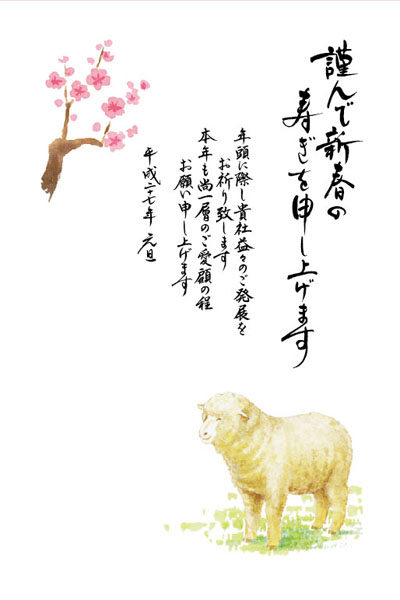 謹んで新春の
寿ぎを申し上げます
年頭に際し貴社益々のご発展を
お祈り致します
本年も尚一層のご愛顧の程
お願い申し上げます
平成二十七年 元旦